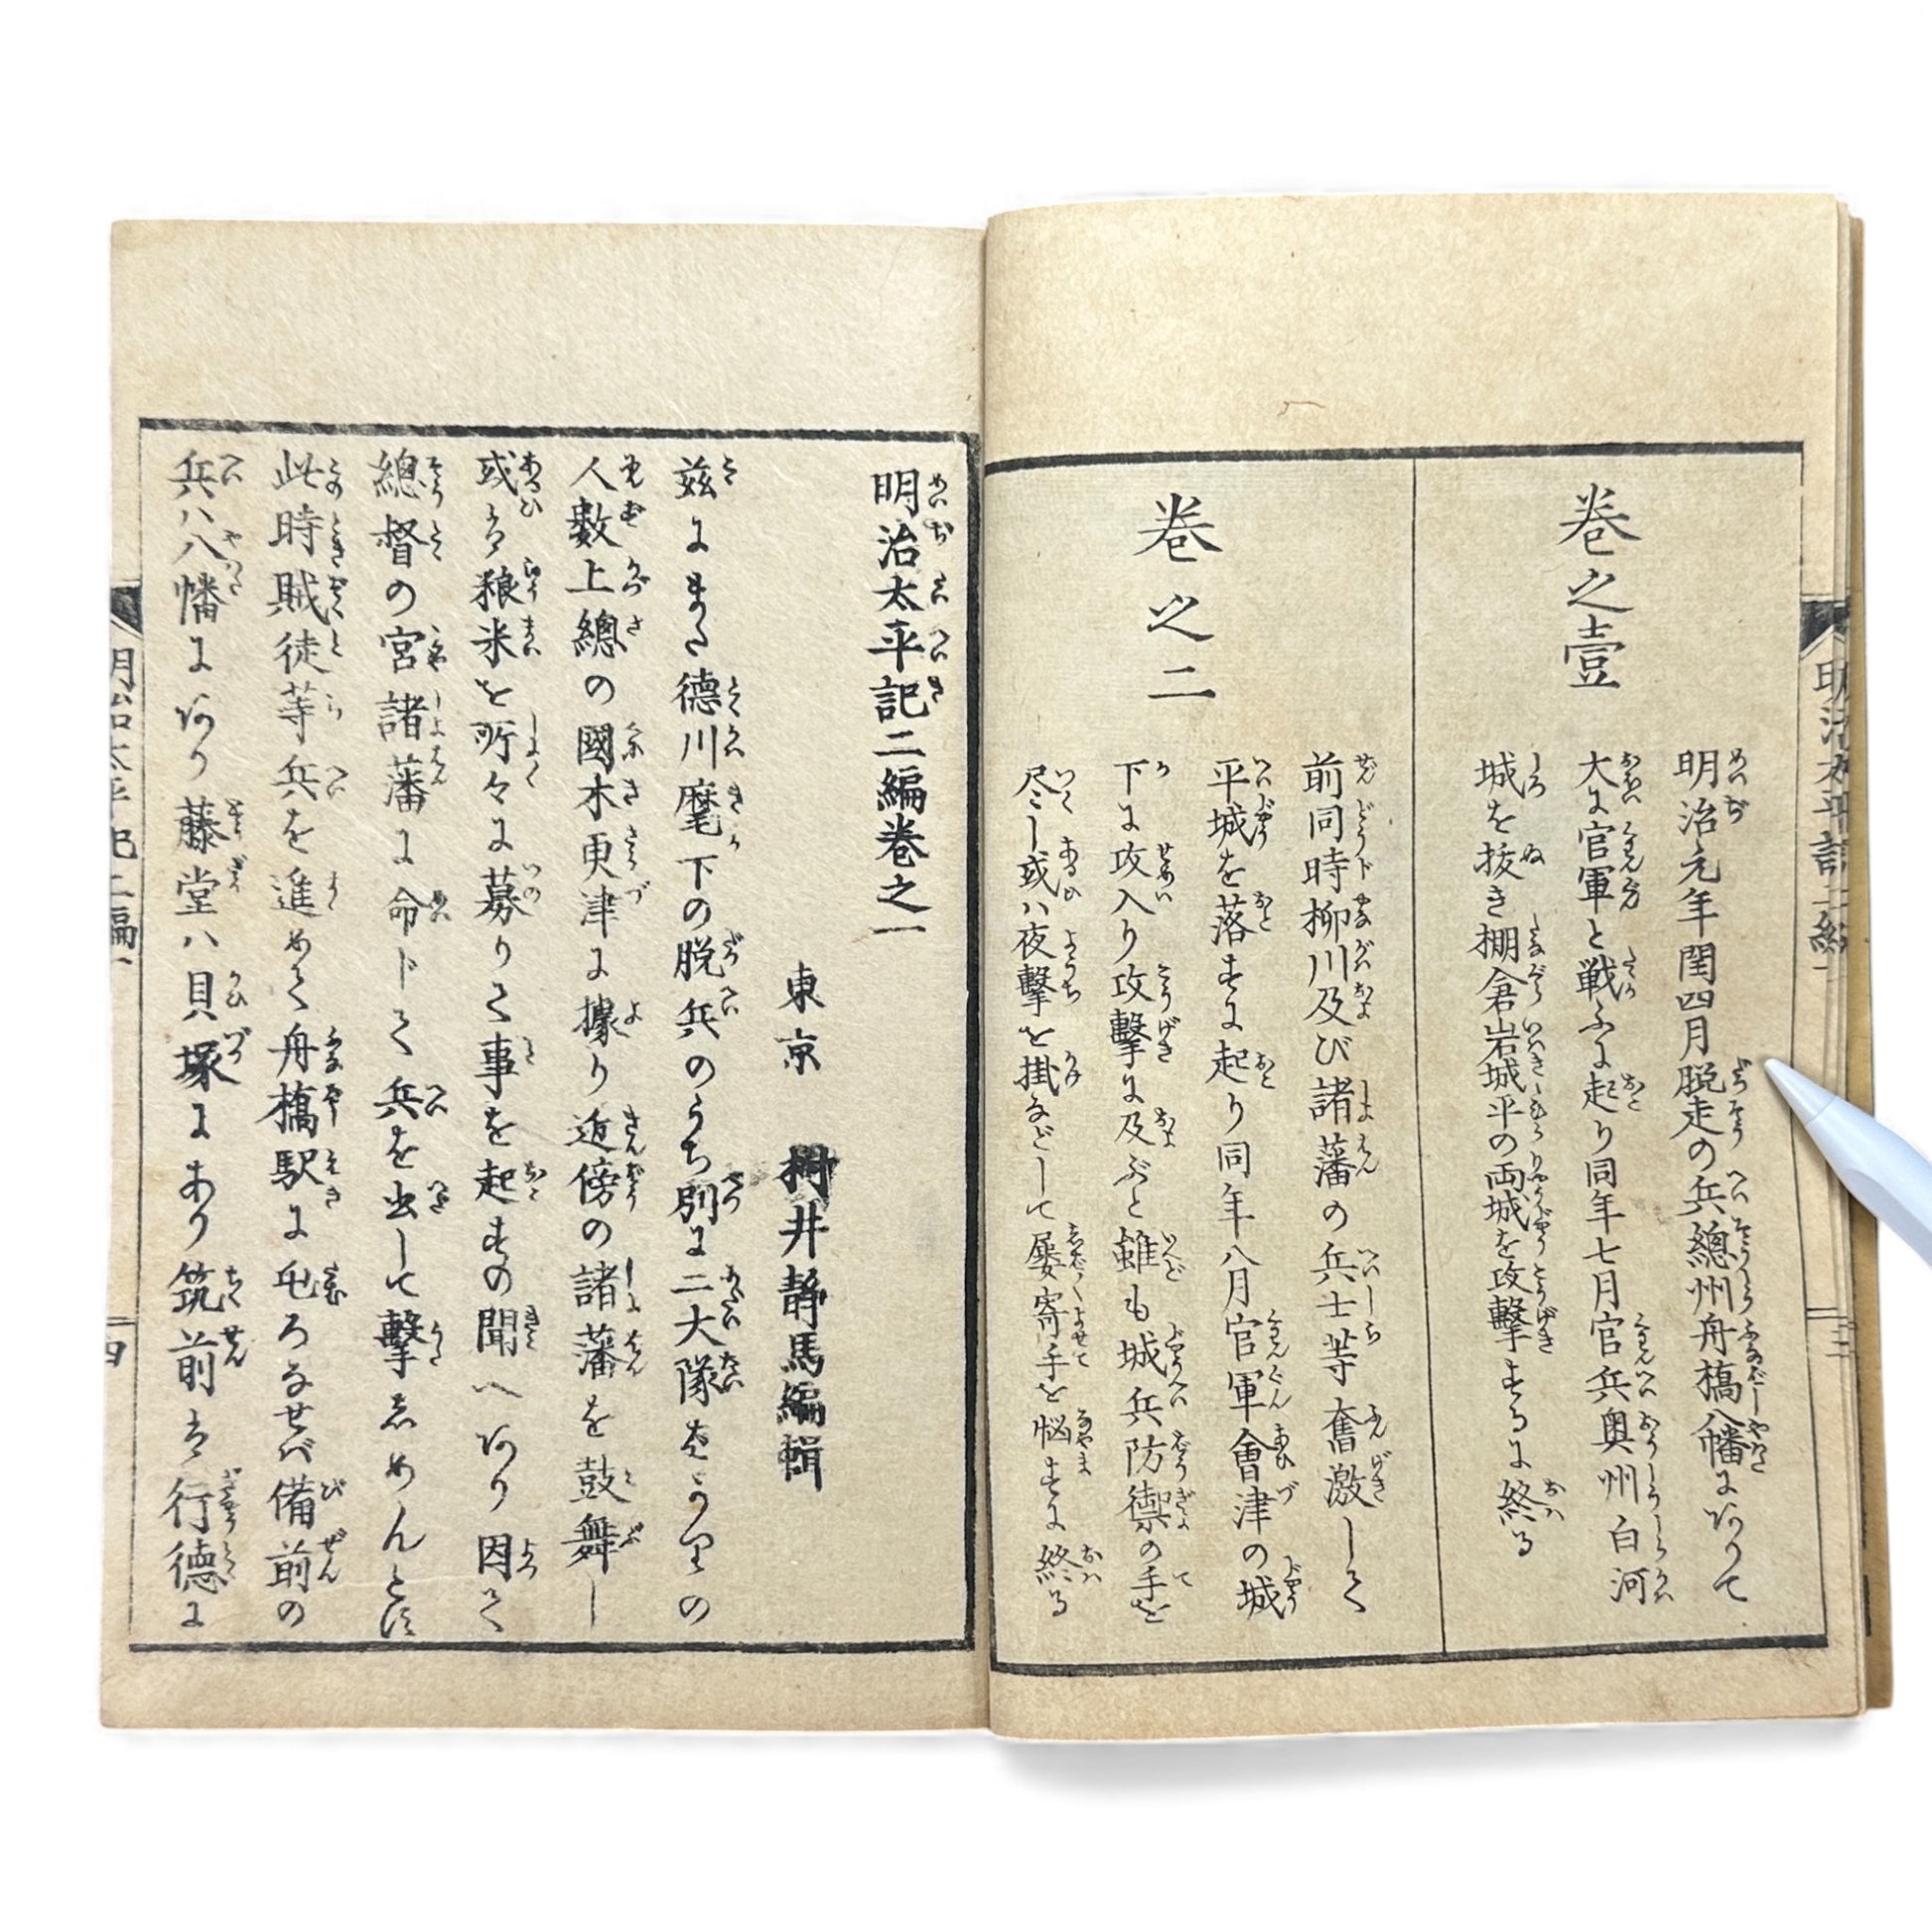 巻之壹
明治元年閏四月脱走の兵總州舟橋八幡にありて
大に官軍と戦ふに起り同年七月官兵奥州白河
城を抜き棚倉岩城平の両城を攻撃するに終る
巻之二
前同時柳川及び諸藩の兵士等奮激して
平城を落すに起り同年八月官軍會津の城
下に攻入り攻撃に及ぶと雖も城兵防禦の手を
尽し或ハ夜撃を掛るどして屡寄手を悩すに終る
明治太平記二編巻之一
東京 井静馬編輯
茲にまた徳川麾下の脱兵のうち別に二大隊をどの
人數上總の國木更津に據り近傍の諸藩を鼓舞し
或は粮米を所々に募りて事を起すの聞へあり因て
總督の宮諸藩に命じて兵を出して撃しめんとす
此時賊徒等兵を進めて舟橋駅に屯ろなせば備前の
兵ハ八幡にあり藤堂ハ貝塚にあり筑前は行徳に
明治太平記二編
四
明治太平記二編一
三